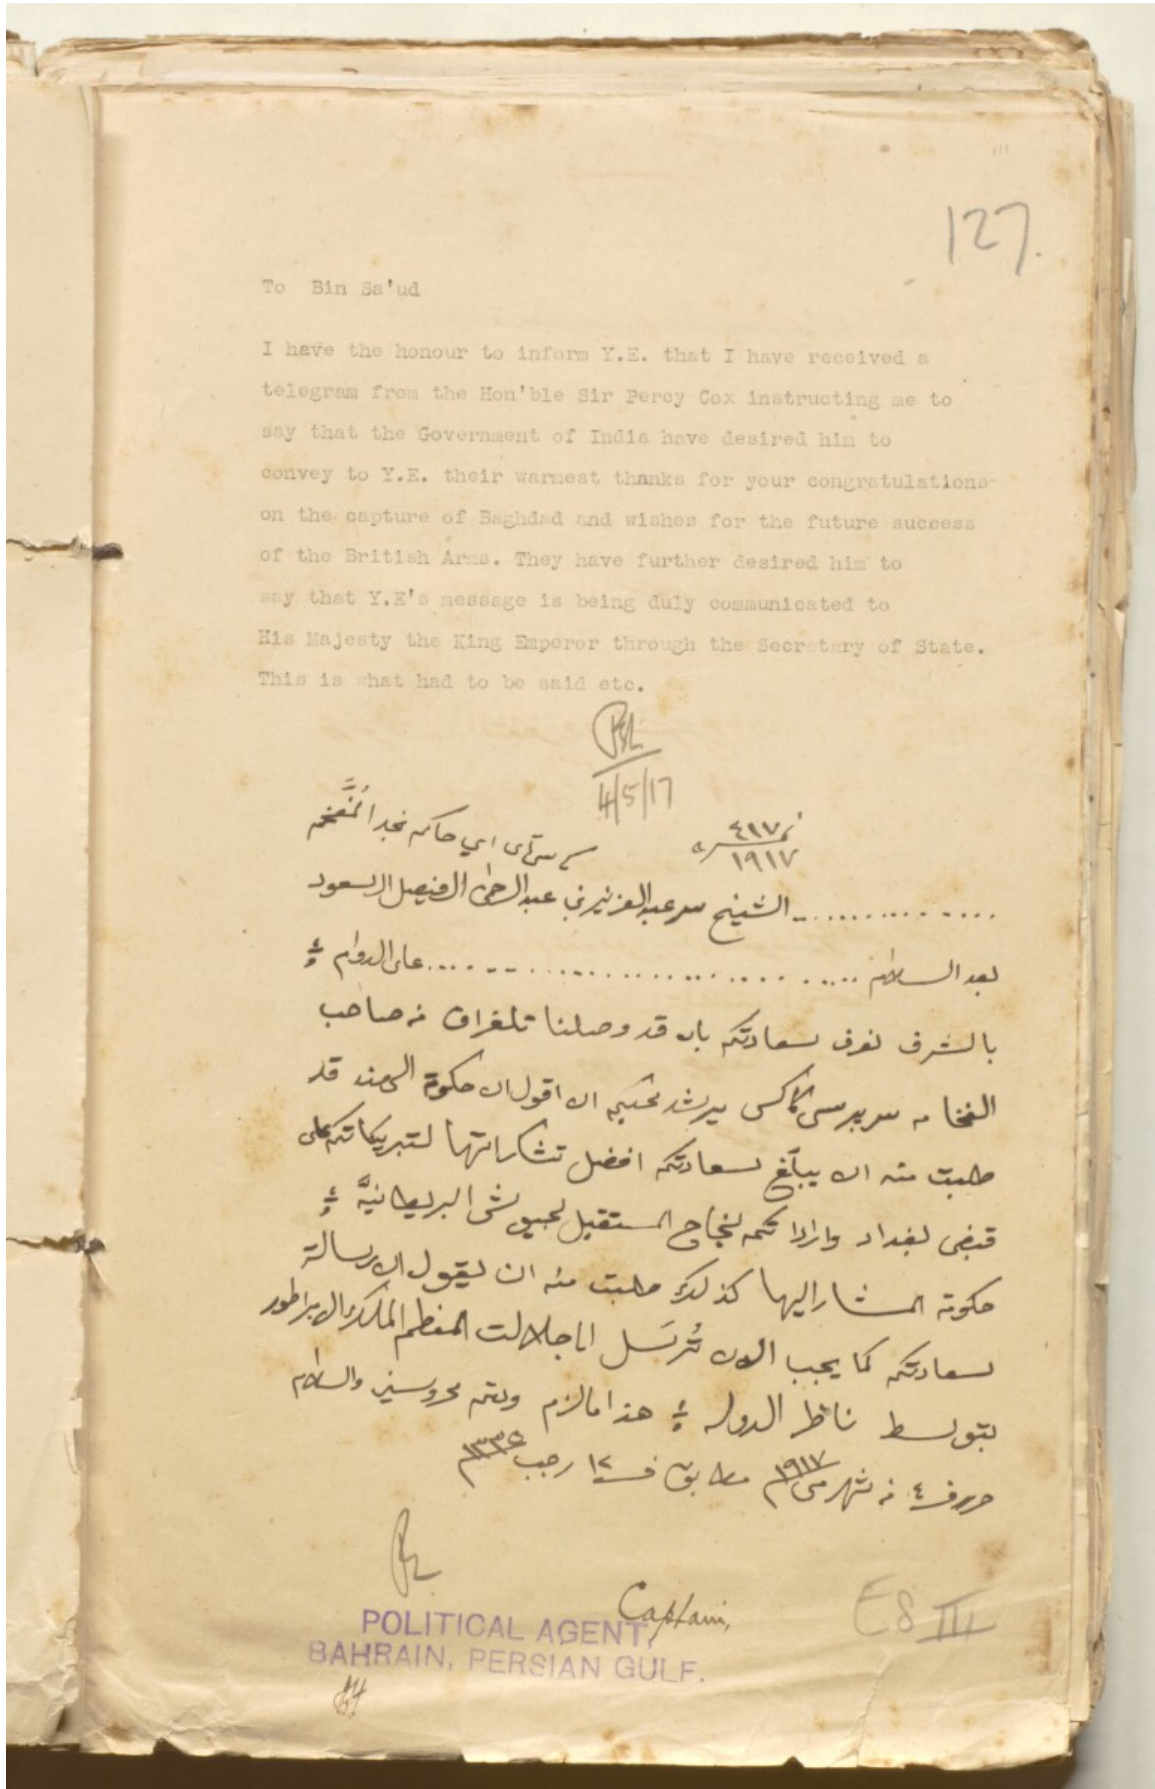 127.
To Bin Sa'ud
I have the honour to inform Y.E. that I have received a
telegram from the Hon'ble Sir Percy Cox instructing me to
say that the Government of India have desired him to
convey to Y.E. their warmest thanks for your congratulations
on the capture of Baghdad and wishes for the future success
of the British Arms. They have further desired him to
say that Y.E's message is being duly communicated to
His Majesty the King Emperor through the Secretary of State.
This is what had to be said etc.
4/5/17
٤١٧
١٩١٧
حاكم نجد المُفَخَّم
الشيخ سر عبدالعزيز بن عبدالرحمن الفيصل السعود
بعد السلام على الدوام
بالشرف نعرف سعادتكم بان قد وصلنا تلغراف من صاحب
الفخامه سر پرسي كاكس يرشد ان اقول ان حكومة الهند قد
طلبت منه ان يبلّغ سعادتكم افضل تشكراتها لتبريكاتكم على
قبض بغداد لنجاح المستقبل لجيوش البريطانيَّة
حكومة المشار اليها كذلك طلبت منه ان يقول ان رسالة
سعادتكم كما يجب الان تُرسَل الى جلالت المعظم الملك الامبراطور
بتوسط ناظر الدوله هذا ما لزم ودمتم محروسين والسلام
حرر في ٤ من شهر مى ١٩١٧م مطابق ١٢ رجب
Captain,
POLITICAL AGENT,
BAHRAIN, PERSIAN GULF.
E8 III